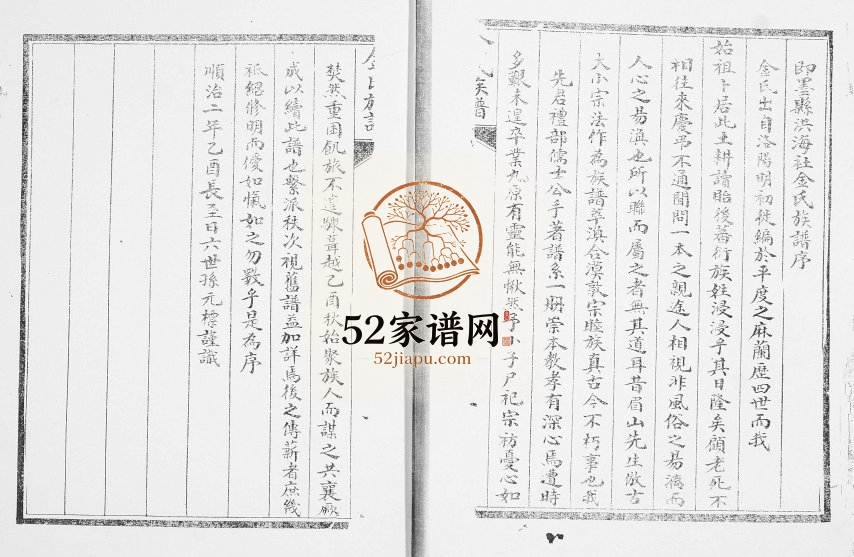 即墨縣洪海社金氏族譜序
金氏出自洛陽明初徙編於平度之麻蘭歷四世而我
始祖卜居此土耕讀貽後蕃衍族姓浸浸乎其日隆矣顧老死不
相往來慶弔不通聞問一本之親途人相視非風俗之易漓而
人心之易渙也所以聯而屬之者無其道耳昔眉山先生倣古
大小宗法作為族譜萃渙合漠敦宗睦族真古今不朽事也我
先君禮部儒士公手著譜系一冊崇本教孝有深心焉遭時
多艱未遑卒業九原有靈能無愀然予小子尸祀宗祊憂心如
焚然重困飢旅不遑
越乙酉秋始聚族人而謀之共襄厥
成以續此譜也繫派秩次視舊譜益加詳焉後之傳薪者庶幾
祗紹將明而僾如愾如之勿斁乎是為序
順治二年乙酉長至日六世孫元標謹識
金氏族譜
氏族譜
52家谱网
52jiapu.com